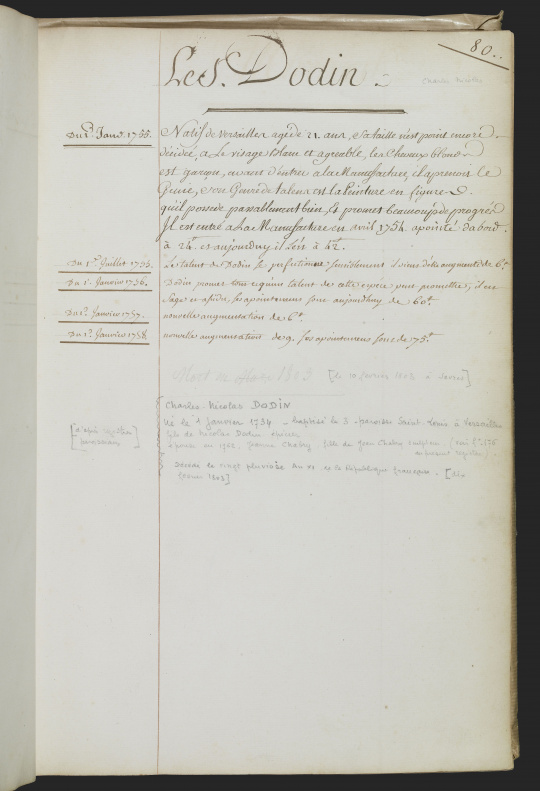 80.
Le S. Dodin.
Charles Nicolas
Du 1er Janv. 1755.
Natif de Versailles agé de 21 ans, Sa taille n'est point encore
décidée, a Le visage blanc et agréable, les Cheveux blonds
est garçon, avant d'entrer a la Manufacture, il apprenoit le
Genie, Son Genre de talens est la Peinture en figures
qu'il possede passablement bien, Et promet beaucoup de progrès
Il est entré a la Manufacture en avril 1754. apointé d'abord
à 24. et aujourduy il l'est à 42.
Du 1er Juillet 1755.
Le talent de Dodin Se perfectionne Sensiblement il vient d'être augmenté de 6.
Du 1er Janvier 1756.
Dodin promet tout ce qu'un talent de cette espece peut promettre, il est
Sage et assidu, ses apointemens sont aujourdhuy de 60
Du 1er Janvier 1757.
nouvelle augmentation de 6
Du 1er Janvier 1758
nouvelle augmentation de 9. ses apointemens sont de 75
Mort 1803 [le 10 février 1803 à Sèvres]
Charles-Nicolas DODIN
né le 1 Janvier 1734 - baptisé le 3 - paroisse Saint Louis à Versailles
[d'après registres
paroissiaux]
fils de Nicolas Dodin
épouse en 1762, Jeanne Chabry fille de Jean Chabry sculpteur (voir f° 176
au présent registre)
Décédé le vingt pluviôse An 11 de la République française - [10
février 1803]